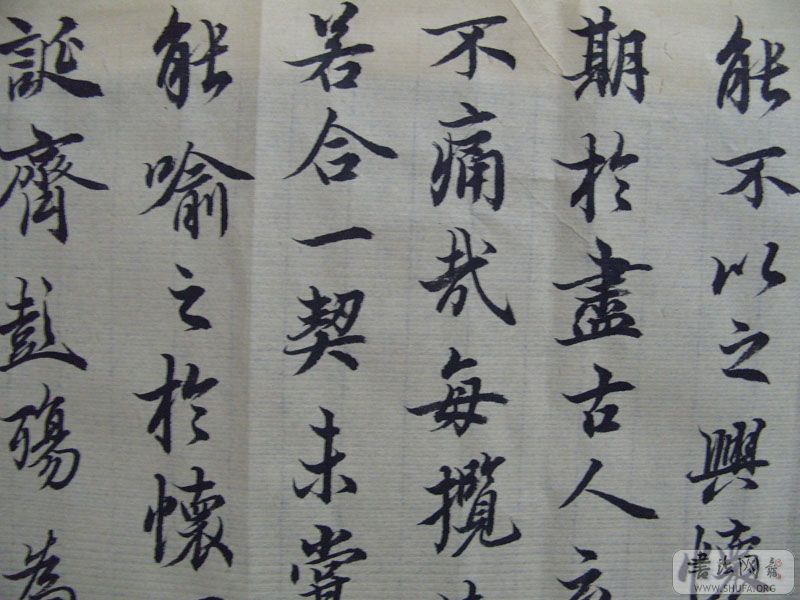 能不以之興懷
期於盡古人云
不痛哉每攬
若合一契未嘗
能喻之於懷
誕齊彭殤為
書法网
WWW.SHUFA.ORG